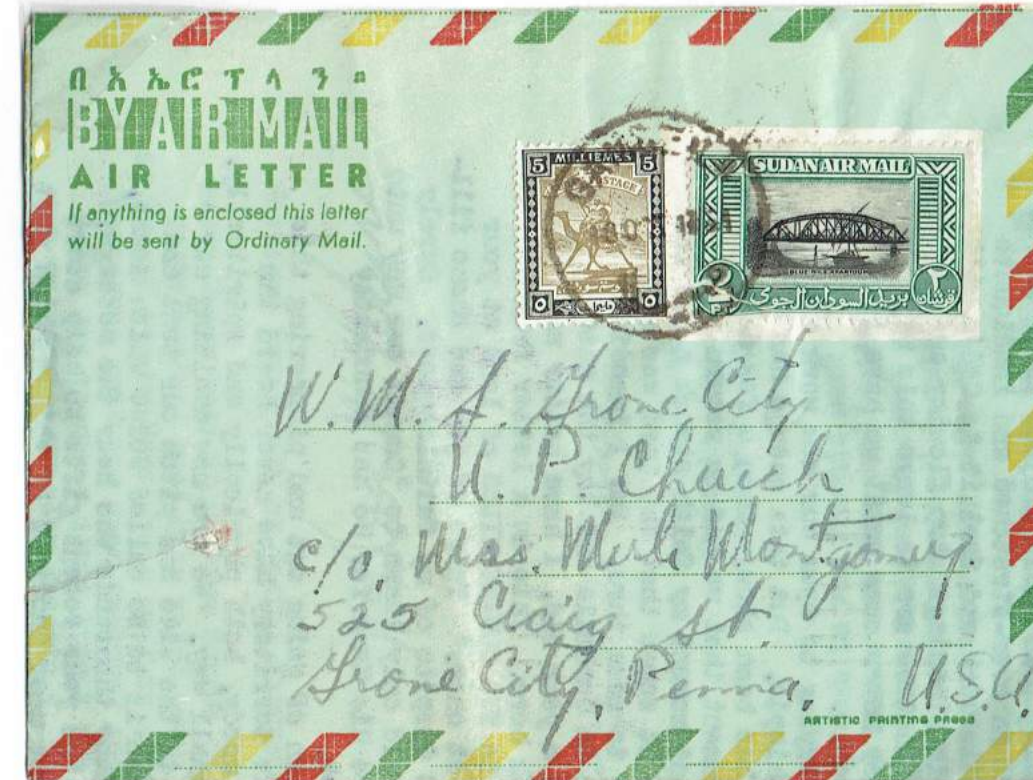 በአኤሮፕላን።
BY AIR MAIL
AIR LETTER
If anything is enclosed this letter
will be sent by Ordinary Mail.
5 MILLIEMES 5
POSTAGE
٥ ٥
SUDAN AIR MAIL
BLUE NILE KHARTOUM
2 بريد السودان الجوى ٢
P.T. قرشان
W. M. S. Grove City
U. P. Church
c/o, Mrs. Merle Montgomery.
525 Craig St.
Grove City, Penna, U.S.A.
ARTISTIC PRINTING PRESS